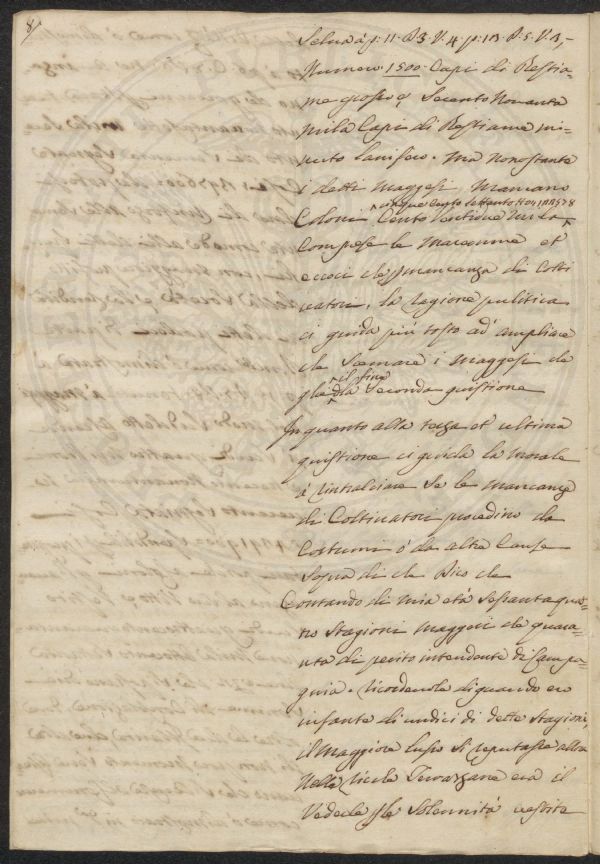 8
Selua á p: 11. R 3. V. 4 p: 13. R. 5. V. 3,-
Numero 1500 Capi di Bestia-
me grosso, e Secento Novanta
mila Capi di Bestiame mi-
nuto lanifero. Ma nonostante
i detti Maggesi, Mancano
cinque Cento settanta
Coloni Cento Ventidue
Comprese le Maremme et
eccoci alla mancanza di Colti
vatori, la ragione politica
ci guida più tosto ad' ampliare
che Scemare i Maggesi che
il fine
della Seconda quistione
In quanto alla terza et ultima
quistione ci guida la morale
á rintralciare Se le mancanze
di Coltivatori procedino da
Costumi ó da altra Causa
Sopra di che Dico che
Contando di mia età Sessanta quat-
tro Stagioni Maggesi che quara-
nta di perito intendente di Campa-
gnia. Ricordevole di quando ero
infante di undici di dette Stagioni
il Maggiore lusso Si reputasse alla
Nella era il
Vederle Solennità vestite